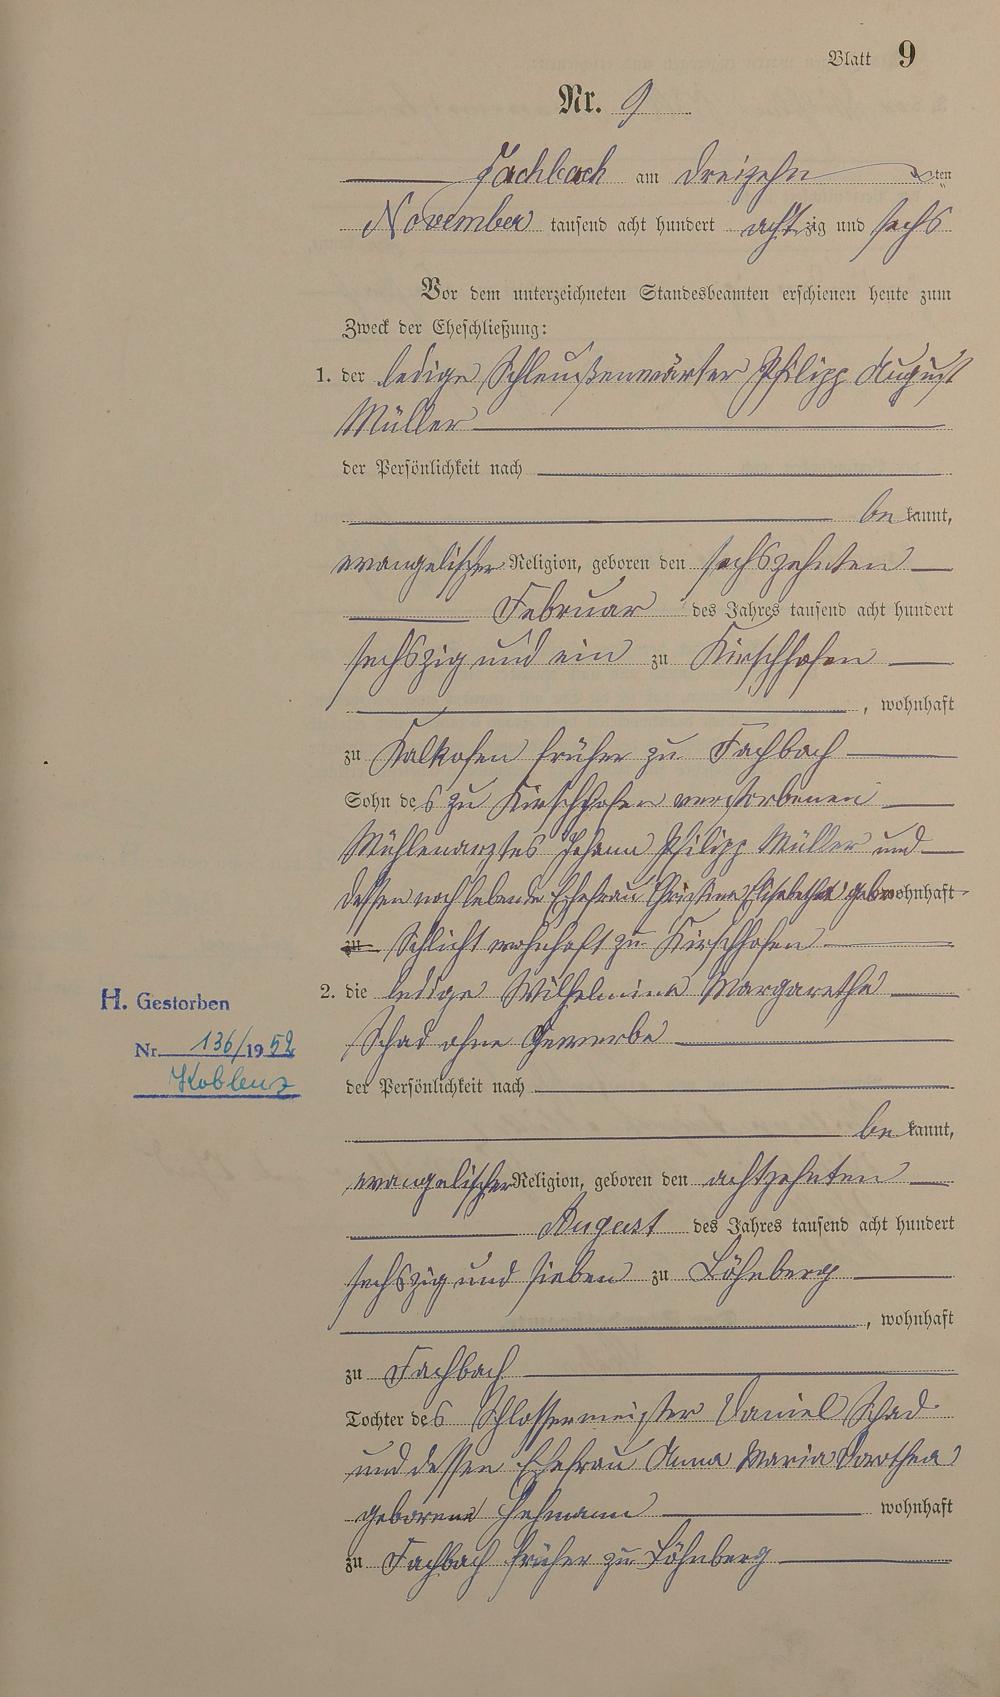 Blatt 9
Nr. 9
Fachbach am dreizehn ten
November tausend acht hundert achtzig und sechs
Vor dem unterzeichneten Standesbeamten erschienen heute zum
Zweck der Eheschließung:
1. der ledige Schleußenwärter Philipp August
Müller
der Persönlichkeit nach
bekannt,
evangelischer Religion, geboren den sechszehnten
Februar des Jahres tausend acht hundert
sechszig und ein zu Kirschhofen
, wohnhaft
zu Kalkofen früher zu Fachbach
Sohn des zu Kirschhofen verstorbenen
Mühlenarztes Johann Philipp Müller und
dessen noch lebende Ehefrau Christina Elisabetha geb. wohnhaft
zu Schlicht wohnhaft zu Kirschhofen
2. die ledige Wilhelmine Margarethe
Schad ohne Gewerbe
der Persönlichkeit nach
bekannt,
evangelischer Religion, geboren den achtzehnten
August des Jahres tausend acht hundert
sechszig und sieben zu Löhnberg
, wohnhaft
zu Fachbach
Tochter des Schlossermeister Daniel Schad
und dessen Ehefrau Anna Maria Dorothea
geborene Hehmann wohnhaft
zu Fachbach früher zu Löhnberg
H. Gestorben
Nr. 136/1952
Koblenz